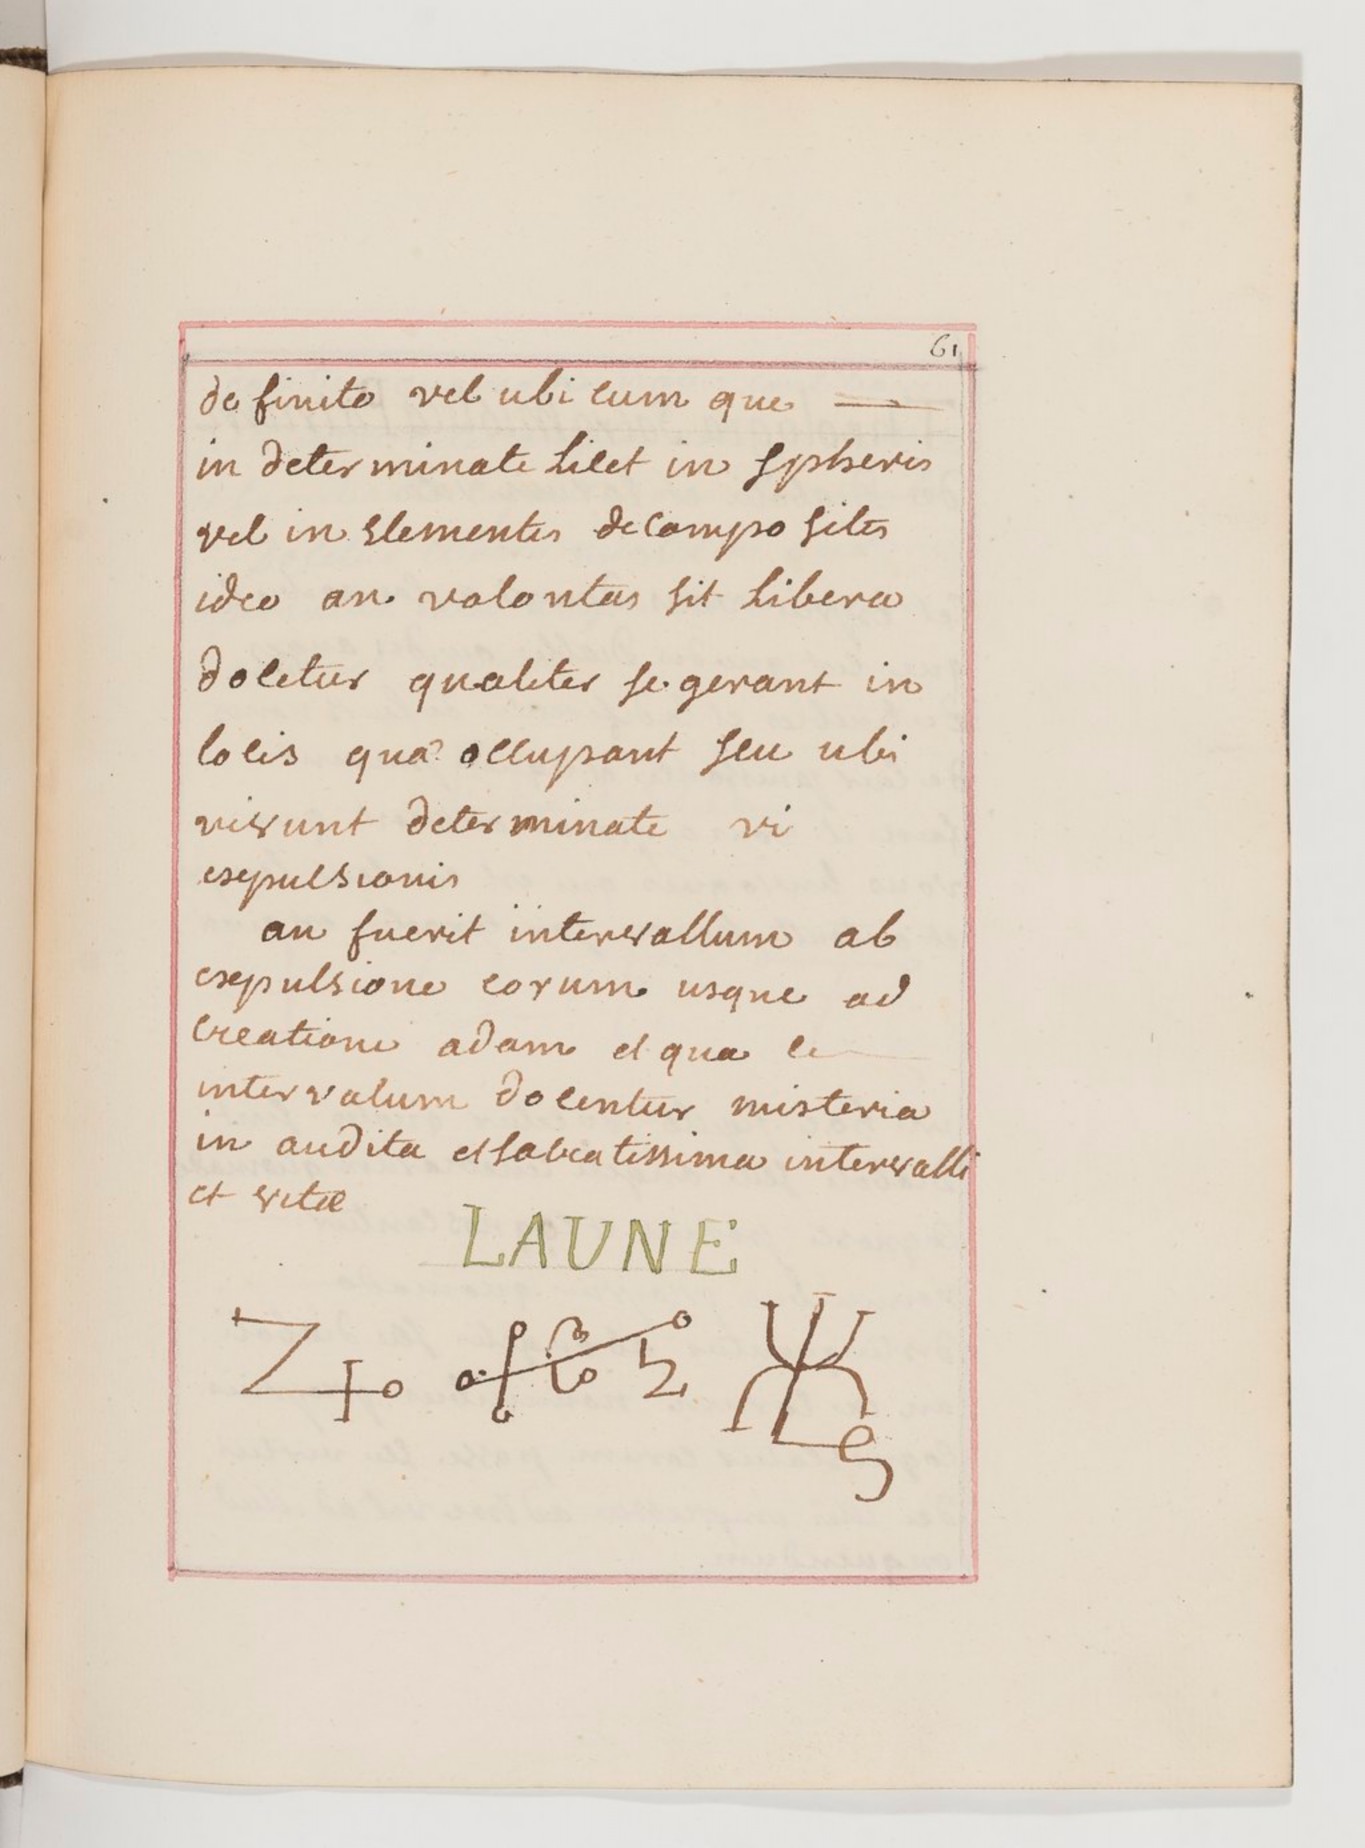 61
definito vel ubi cum que
in determinate licet in spheris
vel in Elementis decompo sitis
ideo an volontas sit libera
docetur qualiter se gerant in
locis qua occupant seu ubi
vivunt determinate vi
expulsionis
an fuerit intervallum ab
expulsione eorum usque ad
creatione adam et qua ce
intervalum docentur misteria
in audita et sacratissima intervalli
et vitæ
LAUNE